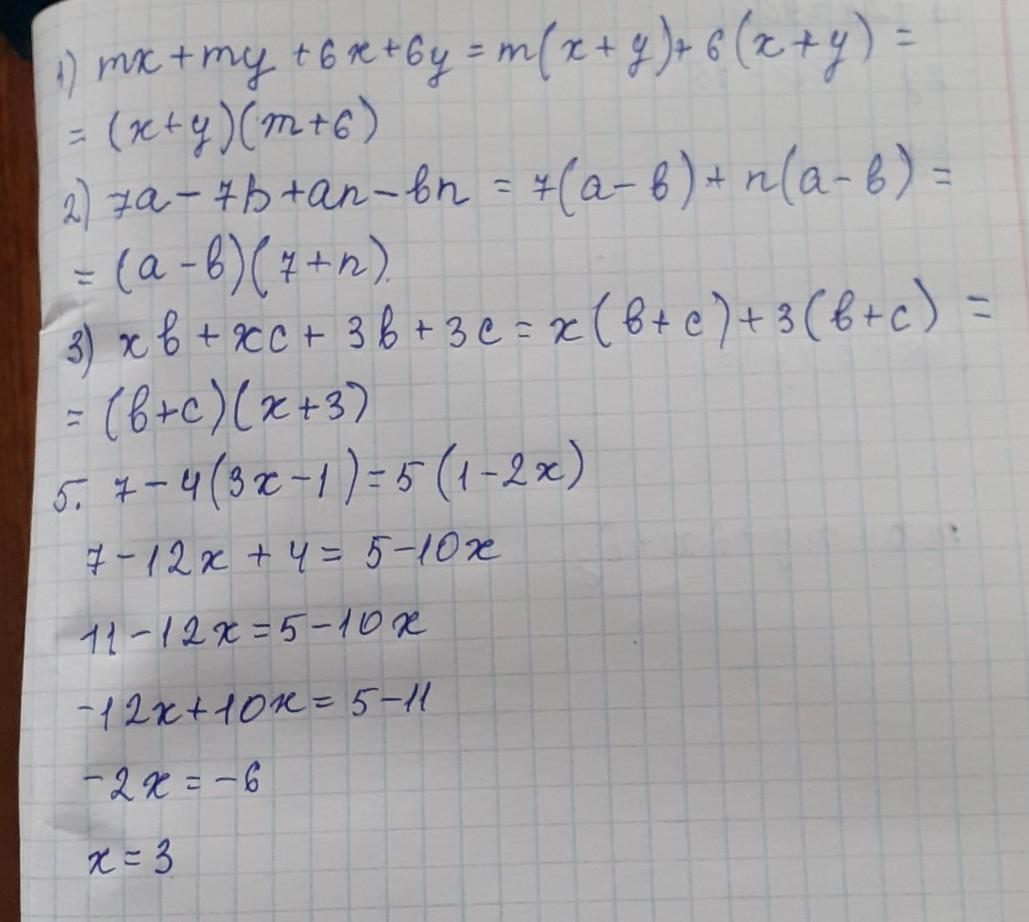 1) mx+my+6x+6y=m(x+y)+6(x+y)=
=(x+y)(m+6)
2) 7a-7b+an-bn=7(a-b)+n(a-b)=
=(a-b)(7+n).
3) xb+xc+3b+3c=x(b+c)+3(b+c)=
=(b+c)(x+3)
5. 7-4(3x-1)=5(1-2x)
7-12x+4=5-10x
11-12x=5-10x
-12x+10x=5-11
-2x=-6
x=3